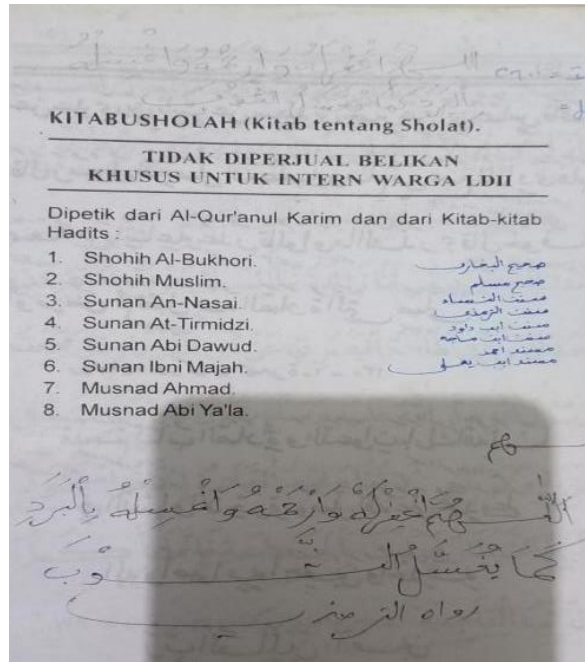 KITABUSHOLAH (Kitab tentang Sholat).
TIDAK DIPERJUAL BELIKAN
KHUSUS UNTUK INTERN WARGA LDII
Dipetik dari Al-Qur'anul Karim dan dari Kitab-kitab
Hadits :
1. Shohih Al-Bukhori.
2. Shohih Muslim.
3. Sunan An-Nasai.
4. Sunan At-Tirmidzi.
5. Sunan Abi Dawud.
6. Sunan Ibni Majah.
7. Musnad Ahmad.
8. Musnad Abi Ya'la.
صحيح البخارى
صحيح مسلم
سنن النساء
سنن الترمذى
سنن ابى داود
سنن ابن ماجه
مسند احمد
مسند ابى يعلى
اللّٰهُمَّ اغْفِرْلَهُ وَارْحَمْهُ وَاغْسِلْهُ بِالْبَرَدِ
كَمَا يُغْسَلُ الثَّوْبُ
رواه الترمذى